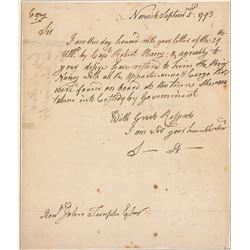 Copy
Norwich Septem 5. 1793
Sir
I am this day honord with your letter of the 29th
Ult. by Capt. Robert Barry, & agreably to
your desire have restored to him the Brig
Nancy with all the Appurtenances & Cargo that
were found on board at the time She was
taken into Custody by Government
With Great Respect
I am Sir your humble
S— H—
John Temple Esqr